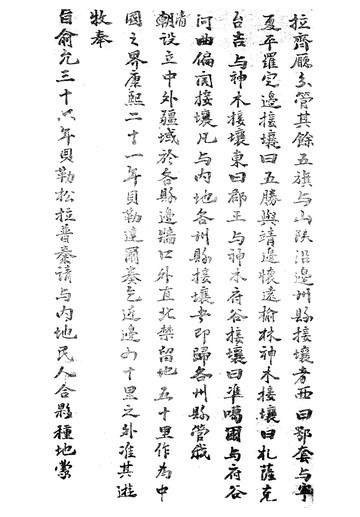 拉齊廳分管其餘五旗与山陝沿邊州縣接壤者西曰鄂套与寧
夏平羅定邊接壤曰五勝與靖邊懷遠榆林神木接壤曰札薩克
台吉与神木接壤東曰郡王与神木府谷接壤曰準噶爾与府谷
河曲偏関接壤凡与内地各州縣接壤者即歸各州縣管我
朝設立中外疆域於各縣邊牆口外直北禁留地五十里作為中
國之界康熙二十一年貝勒達爾奏乞近邊四十里之外准其遊
牧奉
旨俞允三十六年貝勒松拉普奏請与内地民人合夥種地蒙